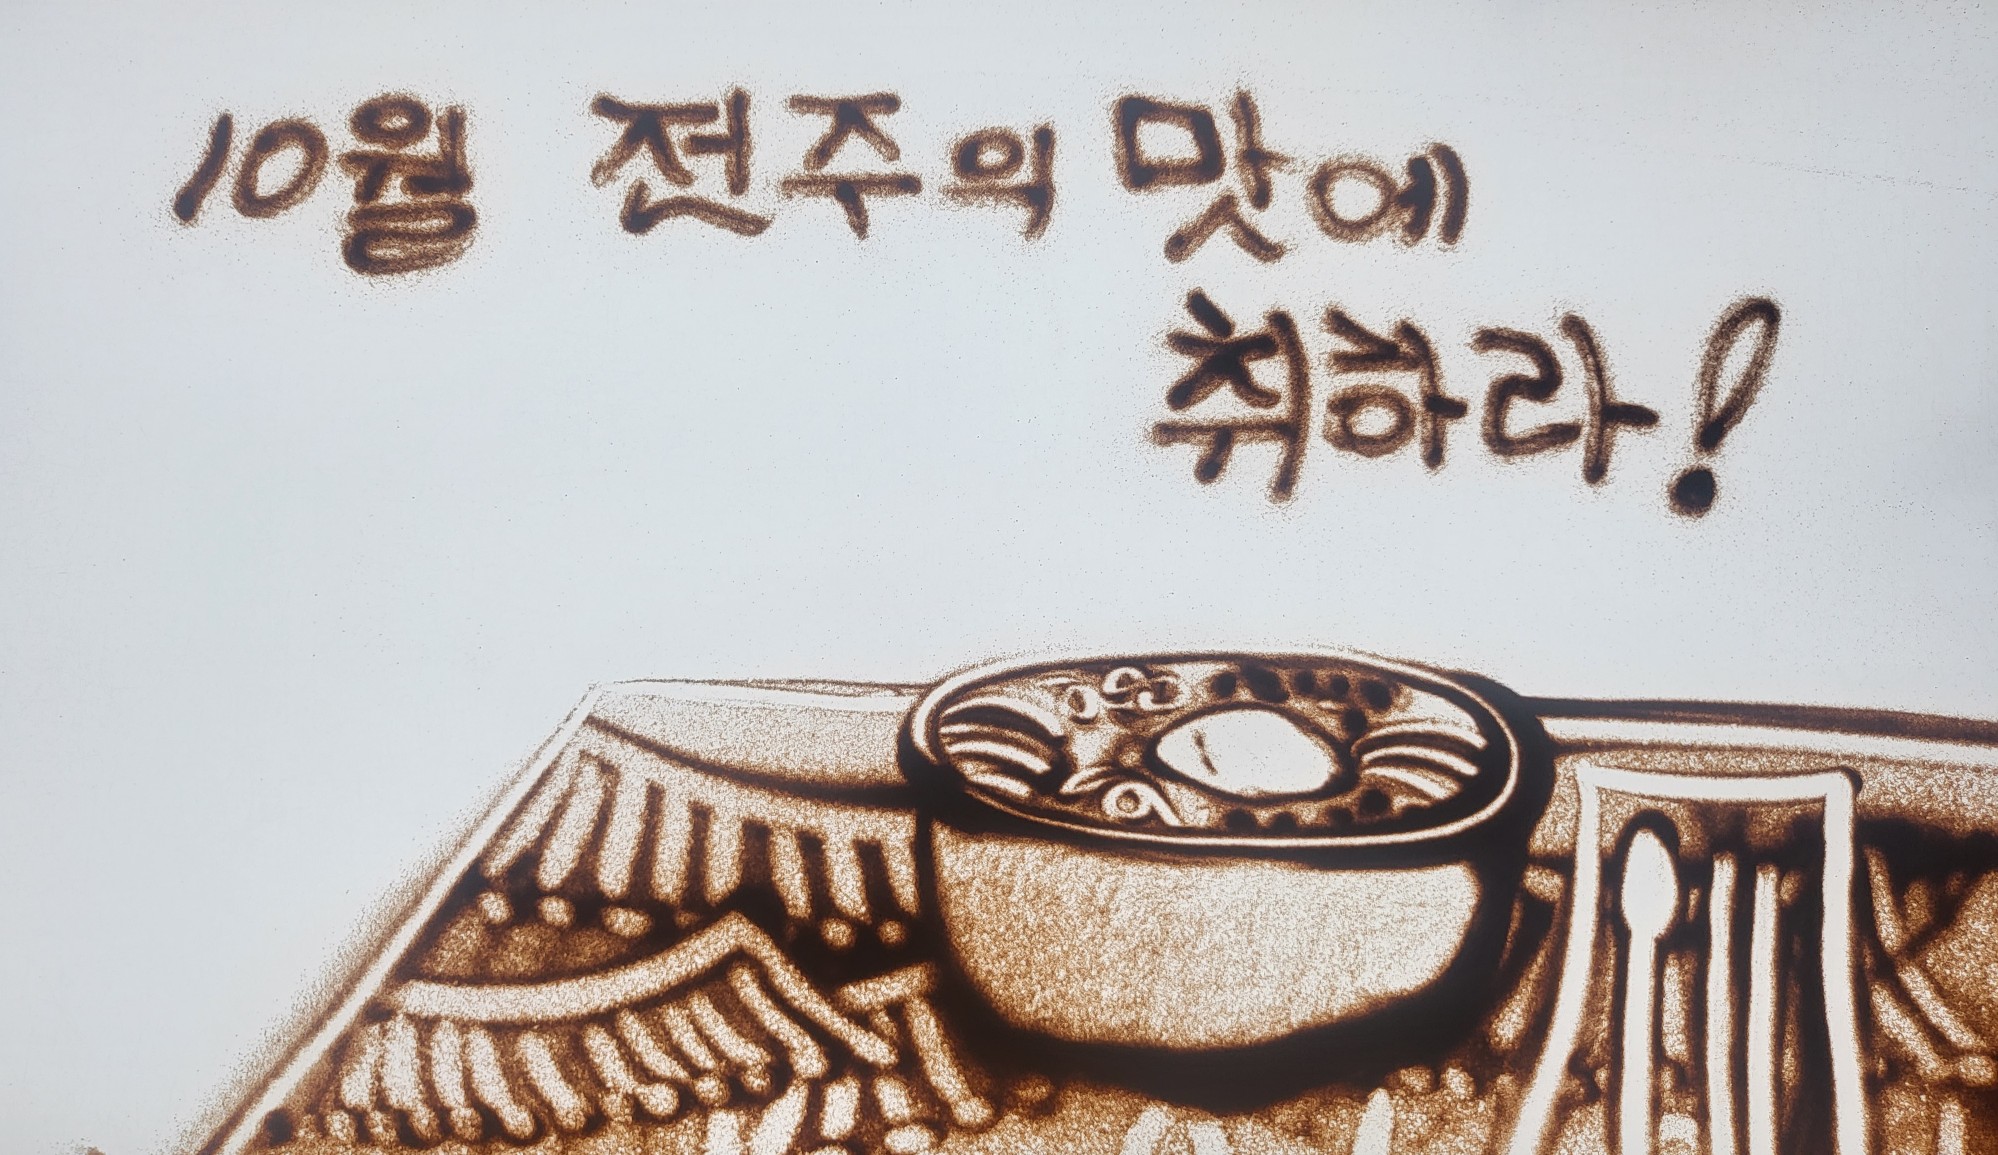 10월 전주의 맛에
취하라!